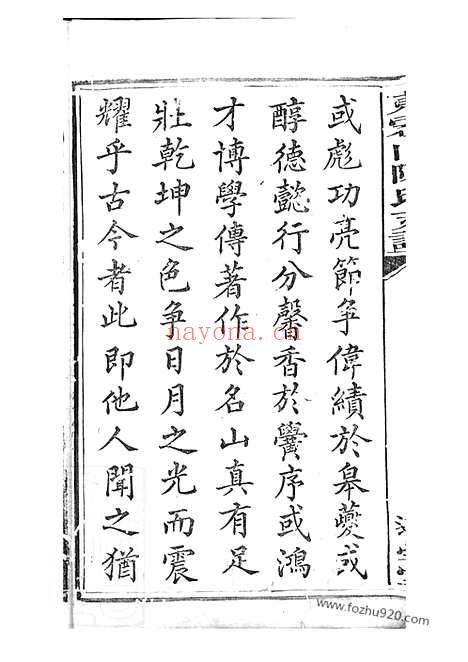 或彪功亮節爭偉績於皋夔或
醇德懿行分馨香於黌序或鴻
才博學傳著作於名山真有足
壯乾坤之色爭日月之光而震
耀乎古今者此即他人聞之猶
hayona.cn
www.fozhu920.com